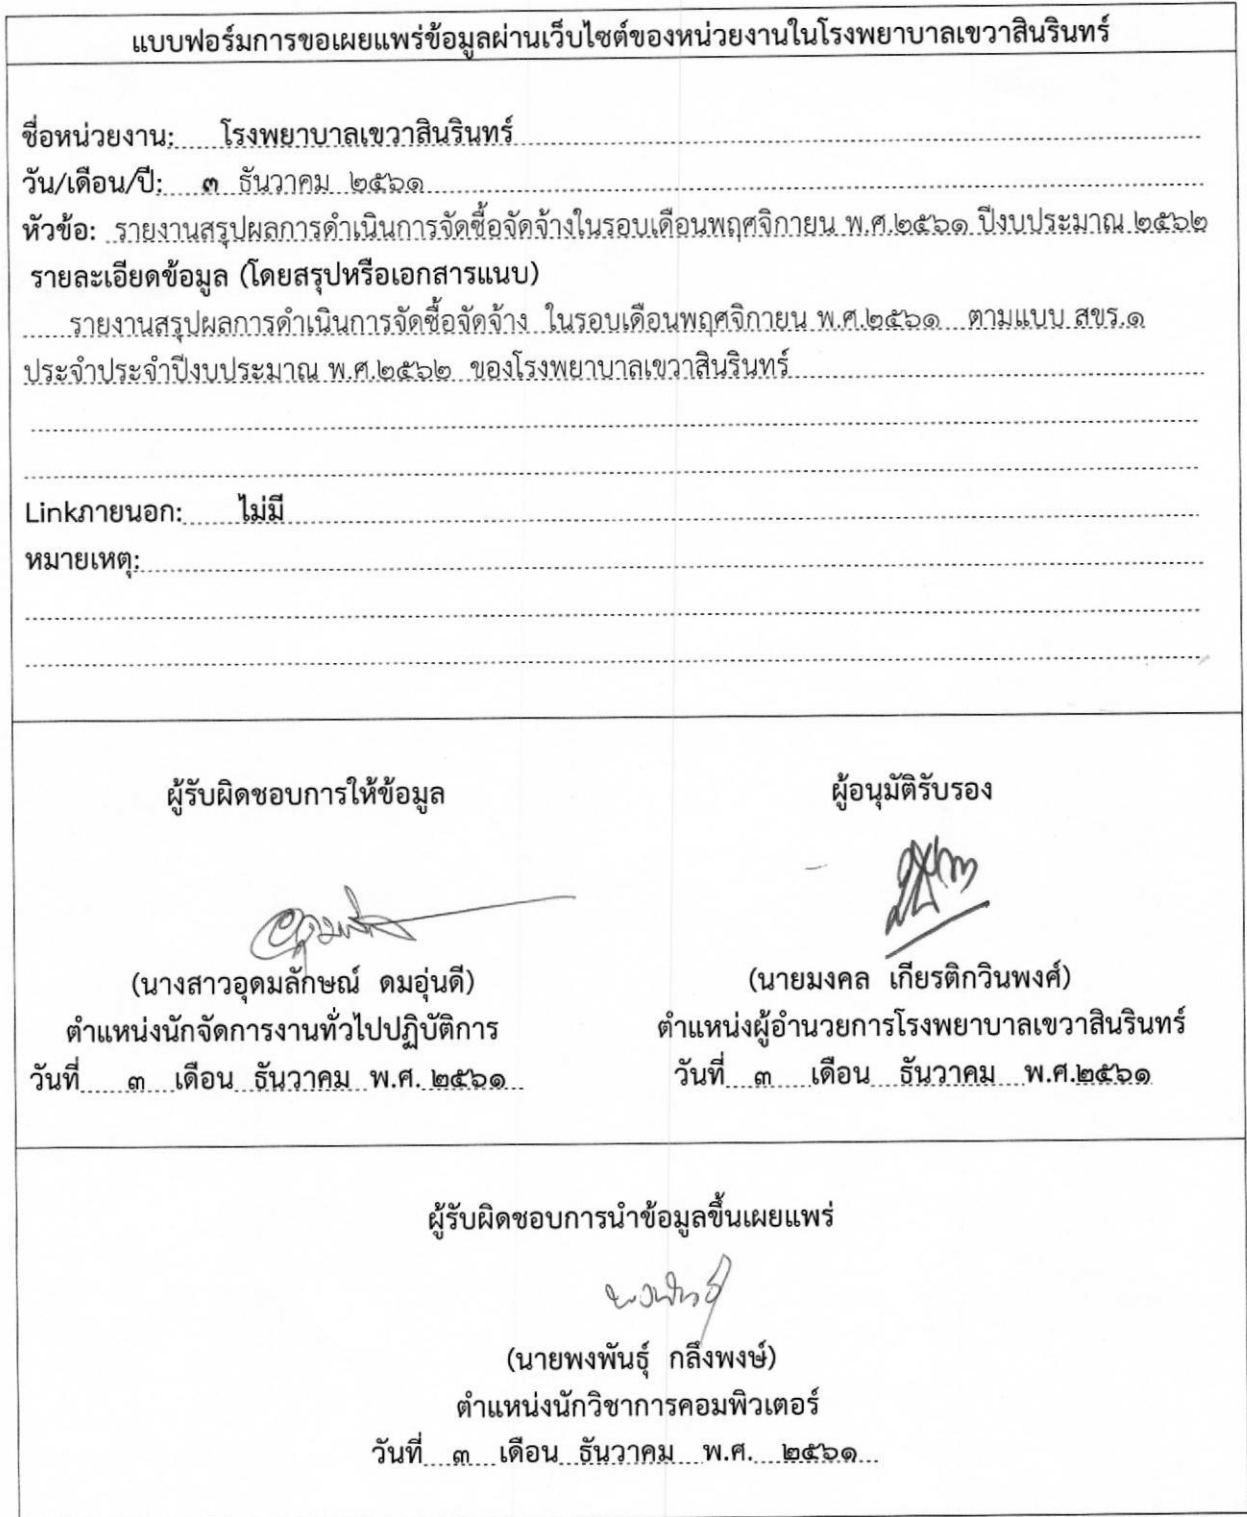 แบบฟอร์มการขอเผยแพร่ข้อมูลผ่านเว็บไซต์ของหน่วยงานในโรงพยาบาลเขวาสินรินทร์
ชื่อหน่วยงาน: โรงพยาบาลเขวาสินรินทร์
วัน/เดือน/ปี: ๓ ธันวาคม ๒๕๖๑
หัวข้อ: รายงานสรุปผลการดำเนินการจัดซื้อจัดจ้างในรอบเดือนพฤศจิกายน พ.ศ.๒๕๖๑ ปีงบประมาณ ๒๕๖๒
รายละเอียดข้อมูล (โดยสรุปหรือเอกสารแนบ)
รายงานสรุปผลการดำเนินการจัดซื้อจัดจ้าง ในรอบเดือนพฤศจิกายน พ.ศ.๒๕๖๑ ตามแบบ สขร.๑
ประจำประจำปีงบประมาณ พ.ศ.๒๕๖๒ ของโรงพยาบาลเขวาสินรินทร์
Linkภายนอก: ไม่มี
หมายเหตุ:
ผู้รับผิดชอบการให้ข้อมูล
(นางสาวอุดมลักษณ์ ดมอุ่นดี)
ตำแหน่งนักจัดการงานทั่วไปปฏิบัติการ
วันที่ ๓ เดือน ธันวาคม พ.ศ. ๒๕๖๑
ผู้อนุมัติรับรอง
(นายมงคล เกียรติกวินพงศ์)
ตำแหน่งผู้อำนวยการโรงพยาบาลเขวาสินรินทร์
วันที่ ๓ เดือน ธันวาคม พ.ศ.๒๕๖๑
ผู้รับผิดชอบการนำข้อมูลขึ้นเผยแพร่
(นายพงพันธุ์ กลึงพงษ์)
ตำแหน่งนักวิชาการคอมพิวเตอร์
วันที่ ๓ เดือน ธันวาคม พ.ศ. ๒๕๖๑